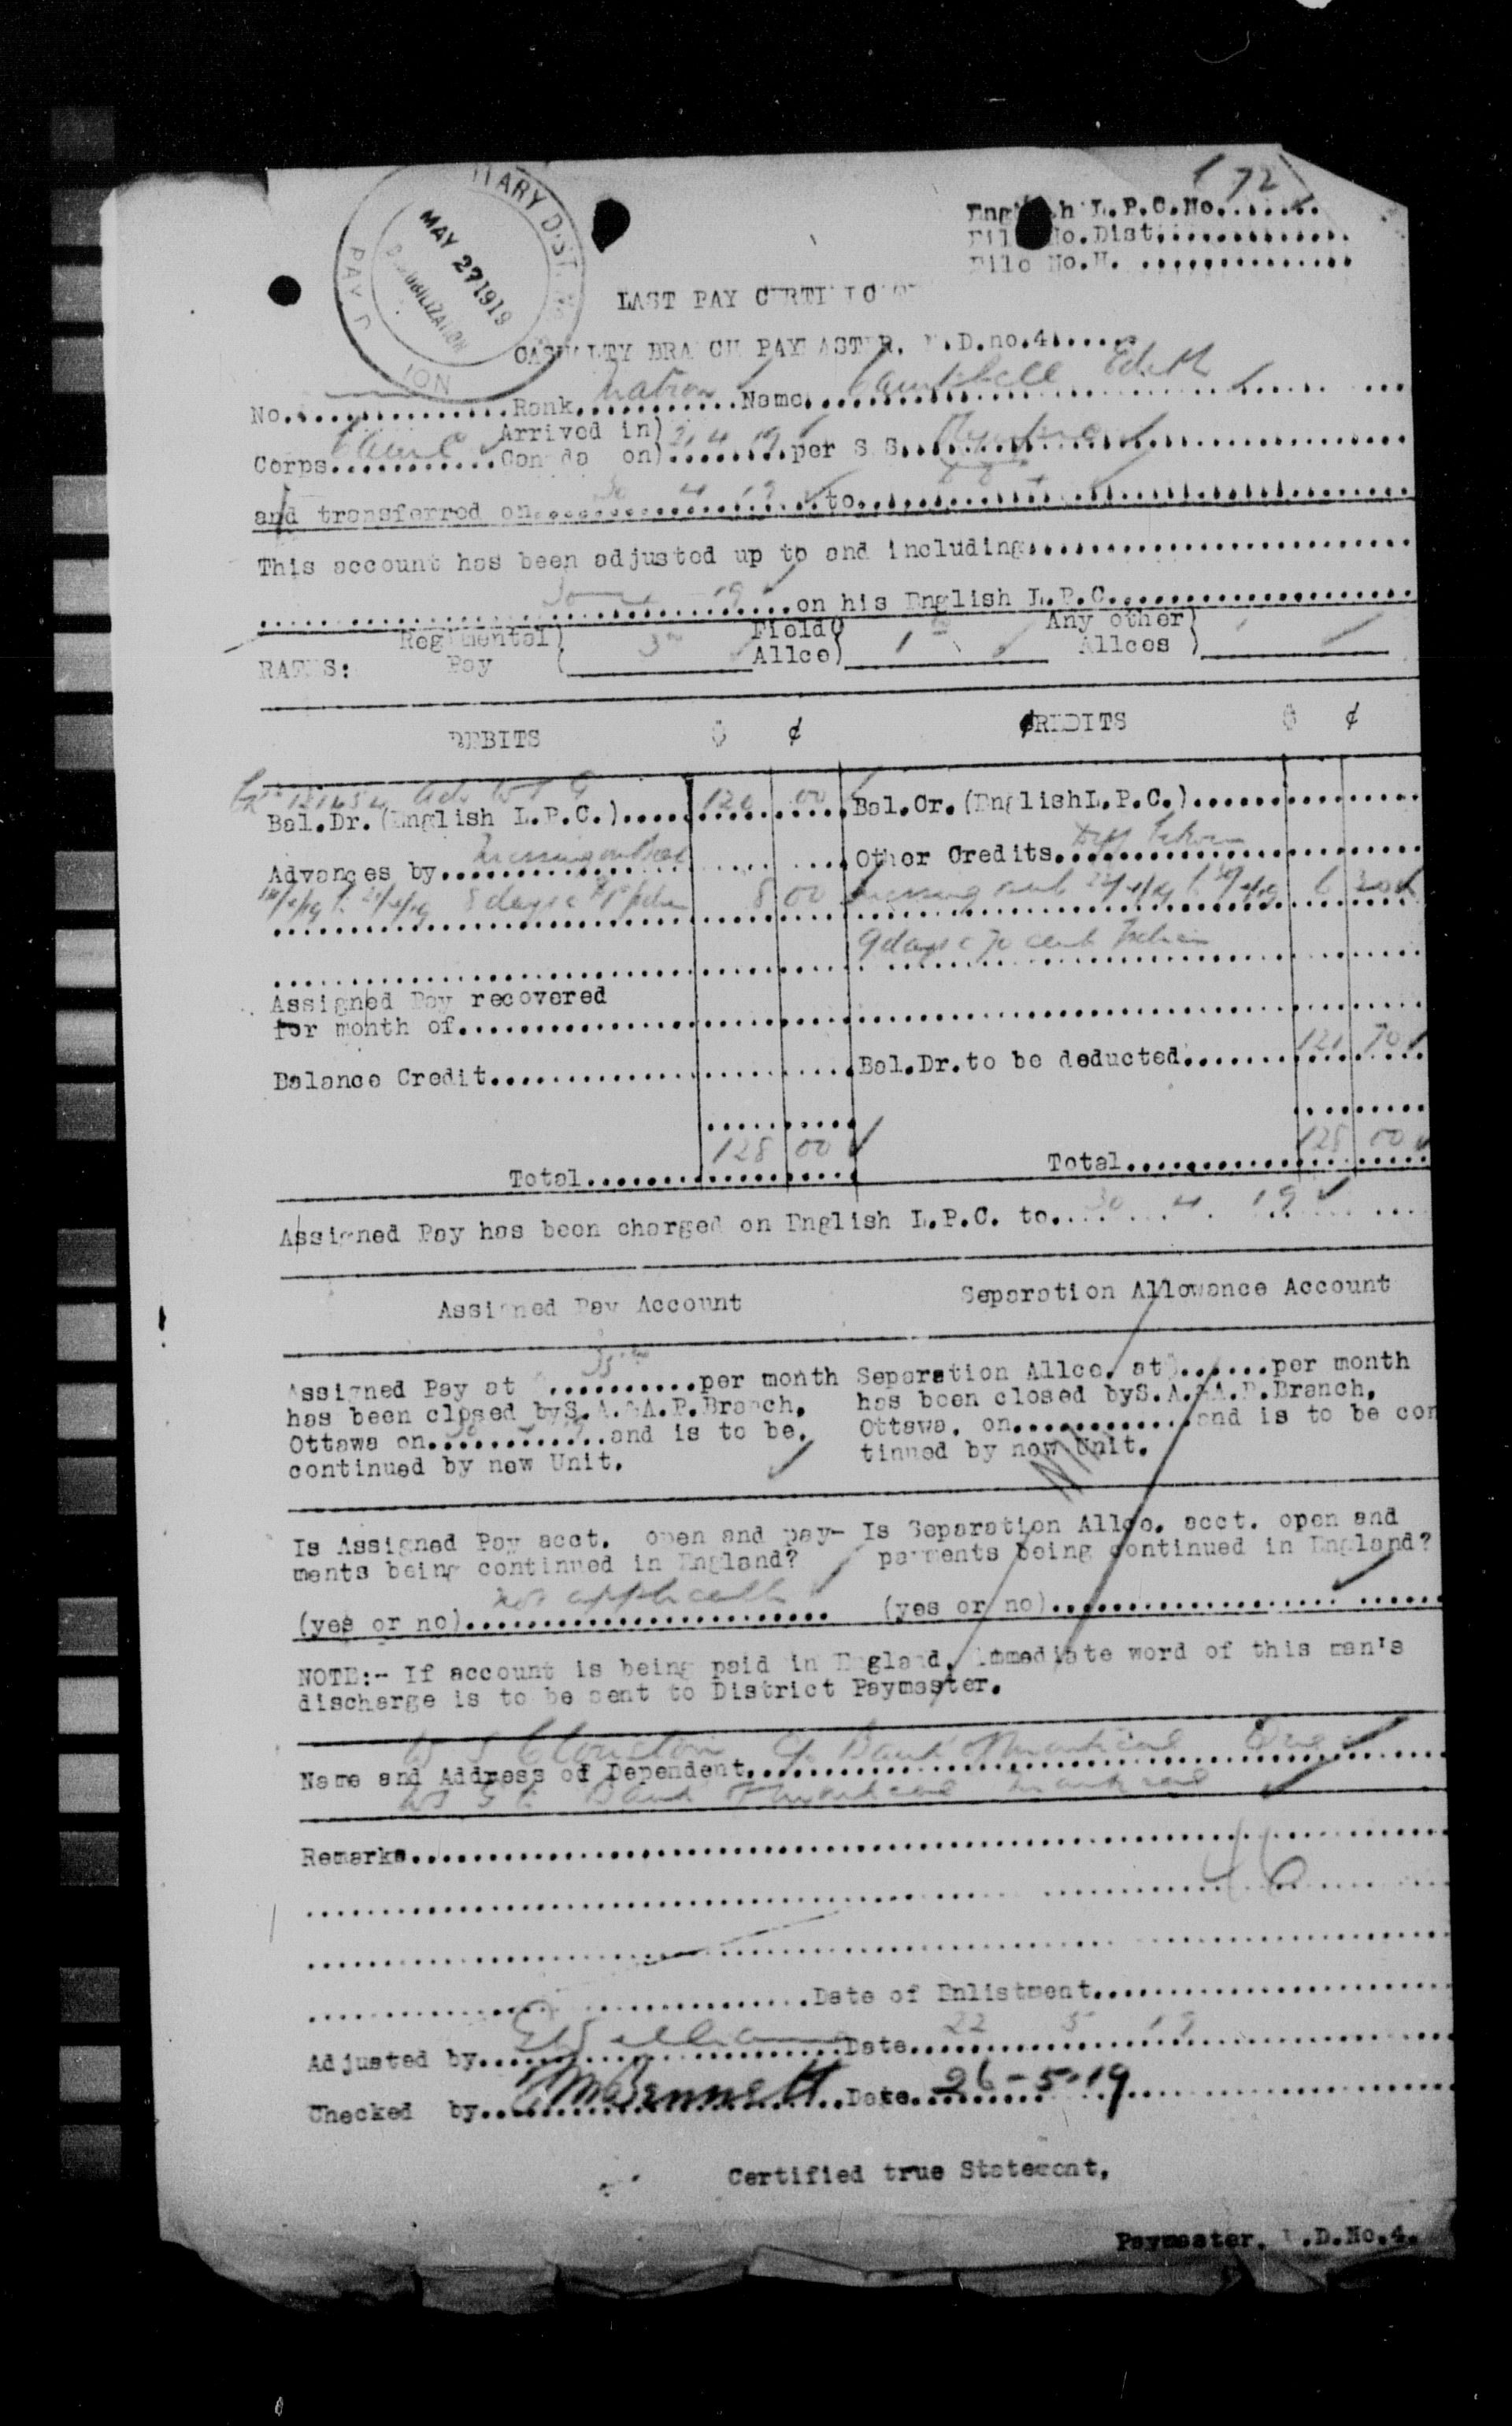 172
English L.P.C.No.......
File No.Dist..............
File No.H. ...............
MILITARY DIST. No
MAY 27 1919
DEMOBILIZATION
PAY
LAST PAY CERTIFICATE
CASUALTY BRANCH PAYMASTER, M.D.no.4......
No................Rank Matron Name Campbell Edith
Corps CAMC Arrived in) Canada on) 2 4 19 per S.S.
and transferred on 30 4 19 to
This account has been adjusted up to and including
19 on his English L.P.C.
RATES: Regimental Pay ( 3 00 Field Allce) 1 00 Any other Allces )
DEBITS $ ¢ CREDITS $ ¢
120 00
Bal.Dr.(English L.P.C.)..... Bal.Cr.(English L.P.C.).....
Advances by Messing Other Credits
8 days 8 00 Messing 6 30
9 days 70 cents
Assigned Pay recovered
for month of
Balance Credit Bal.Dr.to be deducted 121 70
Total 128 00 Total 128 00
Assigned Pay has been charged on English L.P.C. to 30 4 19
Assigned Pay Account Separation Allowance Account
Assigned Pay at $..........per month Separation Allce. at $......per month
has been closed by S.A.&A.P.Branch, has been closed byS.A.&A.P.Branch,
Ottawa on............and is to be Ottawa, on............and is to be con
continued by new Unit. tinued by new Unit.
Nil
Is Assigned Pay acct. open and pay- Is Separation Allce. acct. open and
ments being continued in England? payments being continued in England?
(yes or no) not applicable (yes or no)
NOTE:- If account is being paid in England, immediate word of this man's
discharge is to be sent to District Paymaster.
W S Clouston c/o Bank of Montreal Que
Name and Address of Dependent
Bank of Montreal Montreal
Remarks
Date of Enlistment
Adjusted by Date 22 5 19
Checked by Bennett Date 26-5-19
Certified true Statement,
Paymaster, M.D.No.4.